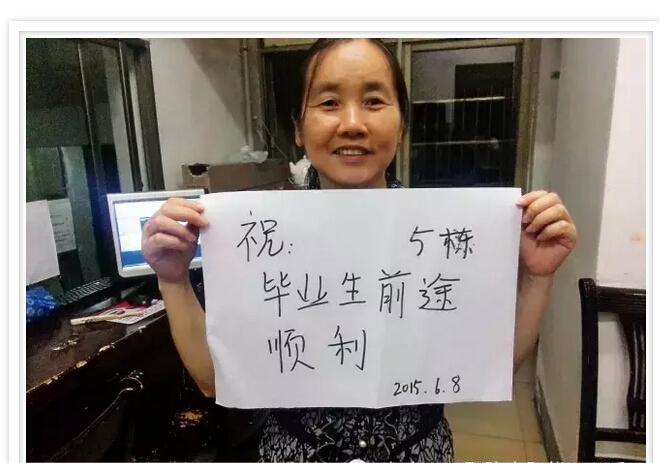 祝: 5栋
毕业生前途
顺利
2015.6.8